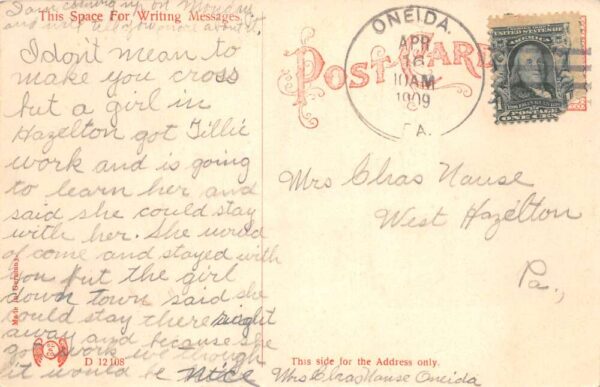 I am coming up on Monday
and will tell you more about it.
This Space For Writing Messages.
I don't mean to
make you cross
but a girl in
Hazelton got Tillie
work and is going
to learn her and
said she could stay
with her. She would
of come and stayed with
you but the girl
down town said she
could stay there right
away and because she
got work we though
it would be nice
Made in Germany.
D 12108
POST CARD
ONEIDA.
APR
16
10AM
1909
PA.
UNITED STATES OF
AMERICA
POSTAGE
ONE CENT
Mrs Chas Nause
West Hazelton
Pa.,
This side for the Address only.
Mrs Chas Nause Oneida